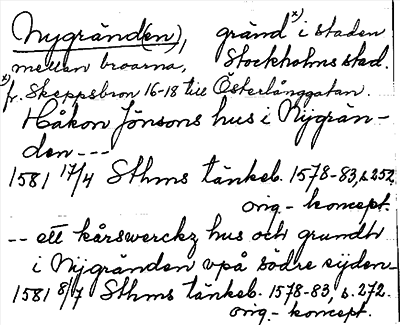 Nygränd(en), gränd x) i staden
mellan broarna, Stockholms stad.
x) fr. Skeppsbron 16-18 till Österlånggatan.
Håkon Jönsons hus i Nygrän-
den ---
1581 17/4 Sthms tänkeb. 1578-83, s. 252
orig-koncept.
-- ett kårswerckz hus och grundh
i Nygränden vpå södre sijden
1581 8/7 Sthms tänkeb. 1578-83, s. 272.
orig.-koncept.